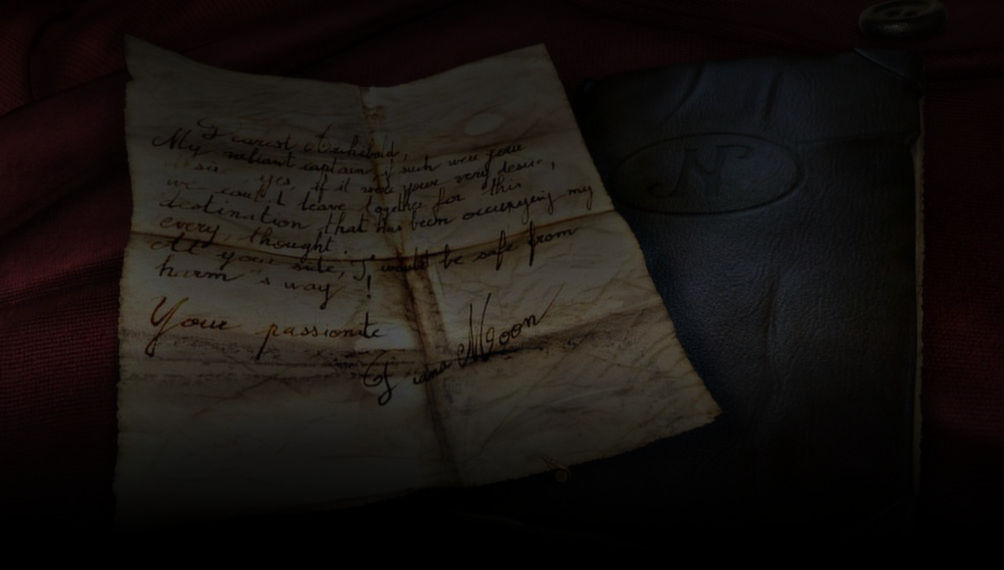 Dearest Archibald,
My valiant captain if such were your
sir yes, if it were your very desire,
we could leave together for this
destination that has been occupying my
every thought.
At your side, I would be safe from
harm's way !
Your passionate
Diana Moon
N